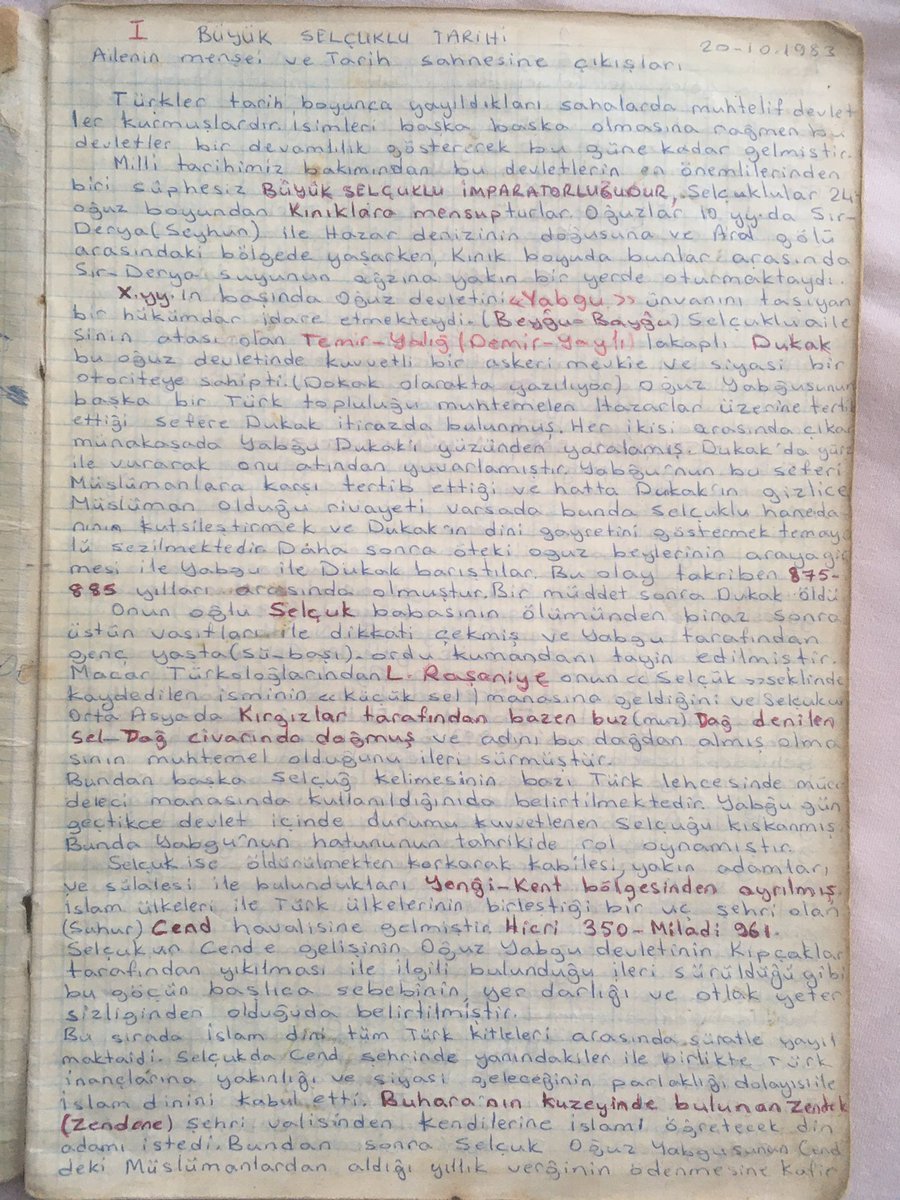 I BÜYÜK SELÇUKLU TARİHİ 20-10.1983
Ailenin menşei ve Tarih sahnesine çıkışları
Türkler tarih boyunca yayıldıkları sahalarda muhtelif devlet
ler kurmuşlardır. İsimleri başka başka olmasına rağmen bu
devletler bir devamlılık göstererek bu güne kadar gelmiştir.
Milli tarihimiz bakımından bu devletlerin en önemlilerinden
biri şüphesiz BÜYÜK SELÇUKLU İMPARATORLUĞUDUR, Selçuklular 24
oğuz boyundan Kınıklara mensupturlar. Oğuzlar 10 yy.da Sır-
Derya (Seyhun) ile Hazar denizinin doğusuna ve Aral gölü
arasındaki bölgede yaşarken, Kınık boyuda bunlar arasında
Sır-Derya suyunun ağzına yakın bir yerde oturmaktaydı.
X.yy.ın başında Oğuz devletini «Yabgu» ünvanını taşıyan
bir hükümdar idare etmekteydi. (Beyğu-Bayğu) Selçuklu aile
sinin atası olan Temir-Yalığ (Demir-Yaylı) lakaplı Dukak
bu oğuz devletinde kuvvetli bir askeri mevkie ve siyasi bir
otoriteye sahipti. (Dokak olarakta yazılıyor) Oğuz Yabğusunun
başka bir Türk topluluğu muhtemelen Hazarlar üzerine terti
ettiği sefere Dukak itirazda bulunmuş. Her ikisi arasında çıka
münakaşada Yabğu Dukak'ı yüzünden yaralamış. Dukak'da gürz
ile vurarak onu atından yuvarlamıştır. Yabğu'nun bu seferi
Müslümanlara karşı tertib ettiği ve hatta Dukak'ın gizlice
Müslüman olduğu rivayeti varsada bunda Selçuklu haneda
nının kutsileştirmek ve Dukak'ın dini gayretini göstermek temay
lü sezilmektedir. Daha sonra öteki oğuz beylerinin araya gir
mesi ile Yabgu ile Dukak barıştılar. Bu olay takriben 875-
885 yılları arasında olmuştur. Bir müddet sonra Dukak öldü
Onun oğlu Selçuk babasının ölümünden biraz sonra
üstün vasıtları ile dikkati çekmiş ve Yabgu tarafından
genç yaşta (sü-başı). ordu kumandanı tayin edilmiştir.
Macar Türkoloğlarından L. Raşaniye onun «Selçük» şeklinde
kaydedilen isminin «küçük sel» manasına geldiğini ve Selçukun
Orta Asyada Kırgızlar tarafından bazen buz (muz) Dağ denilen
Sel-Dağ civarında doğmuş ve adını bu dağdan almış olma
sının muhtemel olduğunu ileri sürmüştür.
Bundan başka Selçuğ kelimesinin bazı Türk lehçesinde müca
deleci manasında kullanıldığınıda belirtilmektedir. Yabğu gün
geçtikçe devlet içinde durumu kuvvetlenen Selçuğu kıskanmış.
Bunda Yabgu'nun hatununun tahrikide rol oynamıştır.
Selçuk ise öldürülmekten korkarak kabilesi, yakın adamları
ve sülalesi ile bulundukları Yenği-Kent bölgesinden ayrılmış.
İslam ülkeleri ile Türk ülkelerinin birleştiği bir uç şehri olan
(Suhur) Cend havalisine gelmiştir. Hicri 350-Miladi 961.
Selçukun Cend'e gelişinin Oğuz Yabgu devletinin Kıpçaklar
tarafından yıkılması ile ilgili bulunduğu ileri sürüldüğü gibi
bu göçün başlıca sebebinin, yer darlığı ve otlak yeter
sizliginden olduğuda belirtilmiştir.
Bu sırada islam dini tüm Türk kitleleri arasında süratle yayıl
maktaidi. Selçukda Cend şehrinde yanındakiler ile birlikte Türk
inançlarına yakınlığı ve siyasi geleceğinin parlaklığı dolayısı ile
islam dinini kabul etti. Buhara'nın kuzeyinde bulunan Zendek
(Zendene) şehri valisinden kendilerine islamı öğretecek din
adamı istedi. Bundan sonra Selçuk Oğuz Yabgusunun Cend
deki Müslümanlardan aldığı yıllık verğinin ödenmesine Kafir